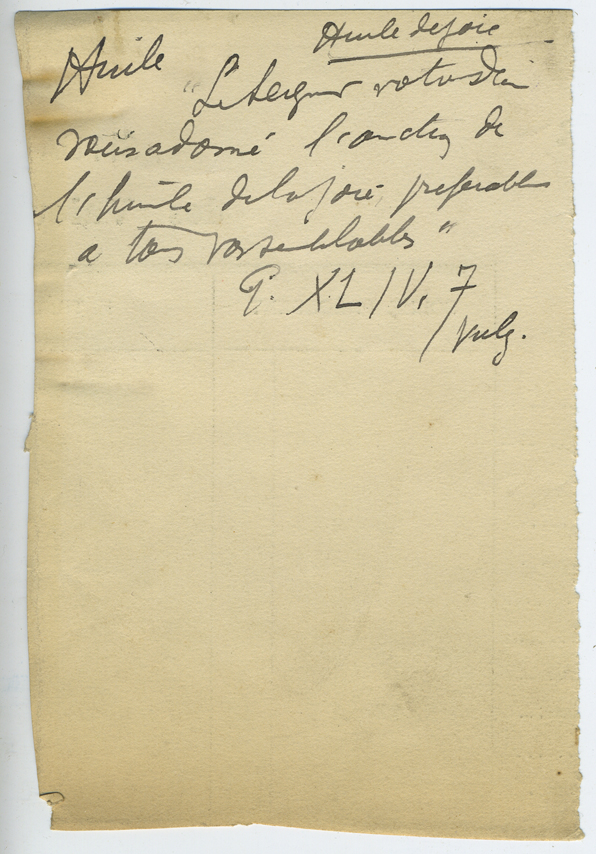 Huile de joie
Huile
"Le Seigneur votre Dieu
vous a donné l'onction de
l'huile de la joie, preferable
a tous vos semblables"
P. XLIV, 7
Vulg.